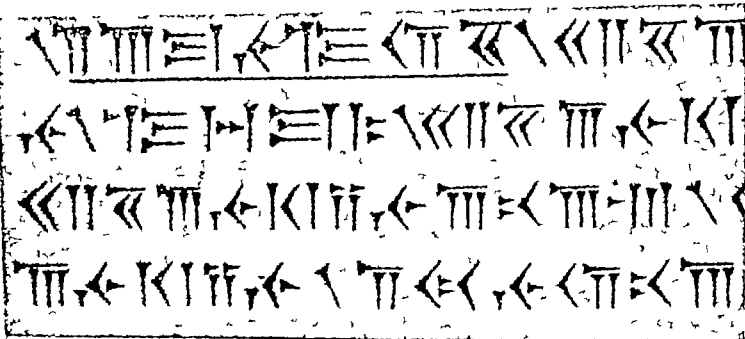 𐏐𐎭𐎠𐎼𐎹𐎺𐎢𐏁𐏐𐎧𐏁𐎠
𐎹𐏐𐎺𐏀𐎼𐎣𐏐𐎧𐏁𐎠𐎹𐎰
𐎧𐏁𐎠𐎹𐎰𐎡𐎹𐎠𐎴𐎠𐎶𐏐
𐎠𐎹𐎰𐎡𐎹𐏐𐎭𐏃𐎹𐎢𐎴𐎠